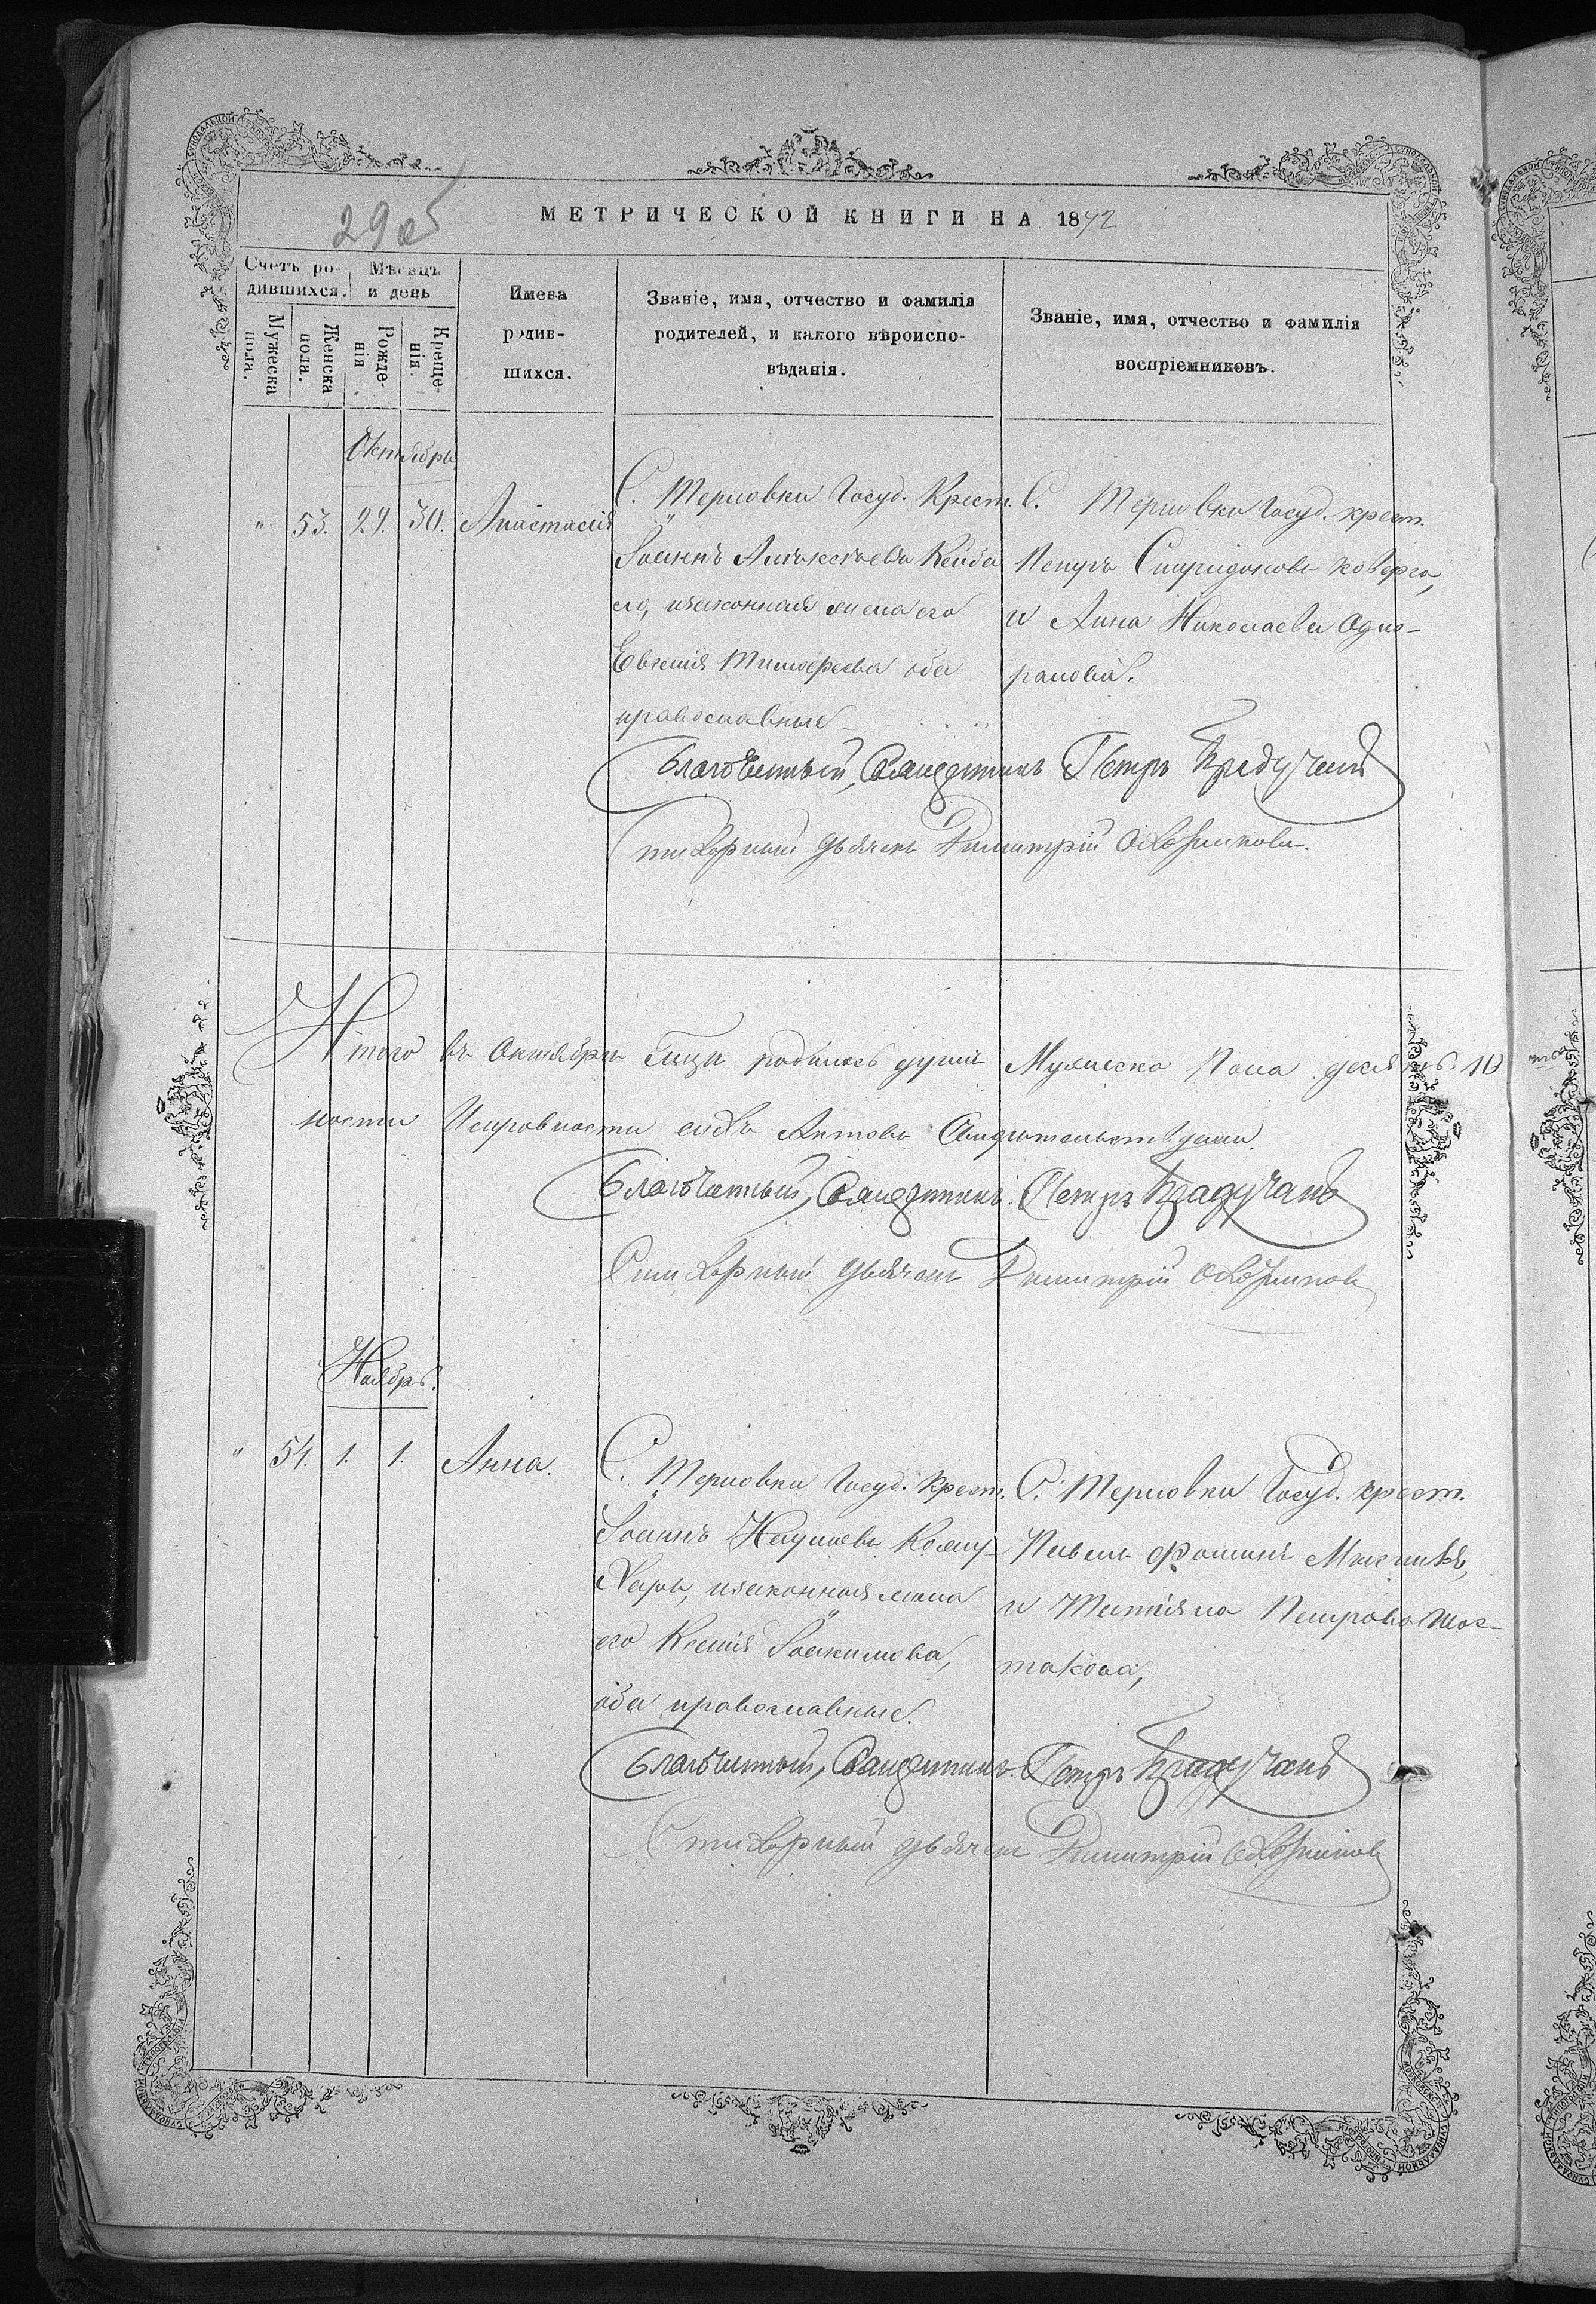 29 об
МЕТРИЧЕСКОЙ КНИГИ НА 1872
Счетъ ро-
дившихся.
Мѣсяцъ
и день
Мужеска
пола.
Женска
пола.
Рожде-
нія
Креще-
нія.
Имена
родив-
шихся.
Званіе, имя, отчество и фамилія
родителей, и какого вѣроиспо-
вѣданія.
Званіе, имя, отчество и фамилія
воспріемниковъ.
Октябрь
" 53. 29. 30. Анастасія
С. Терновки Госуд. Крест.
Іоаннъ Алексѣевъ
и законная жена его
Евгенія Тимофеева оба
православные
С. Терновки Госуд. крест.
Петръ Спиридоновъ Коверга,
и Анна Николаева
Благочинный, Священникъ Петръ
стихарный дьячекъ Димитрій
Итого въ Октябрѣ родилось душъ Мужеска Пола десять, ЖВ
Исправности сихъ Актовъ Свидѣтельствуемъ.
Благочинный, Священникъ Петръ
Стихарный дьячекъ Димитрій
Ноябрь.
" 54. 1. 1. Анна.
С. Терновки Госуд. крест.
Іоаннъ Наумовъ
и законная жена
его Ксенія Іоакимова,
оба православные.
С. Терновки Госуд. крест.
Павелъ Фоминъ
и Татіяна Петрова Шос-
такова,
Благочинный, Священникъ Петръ
Стихарный дьячекъ Димитрій